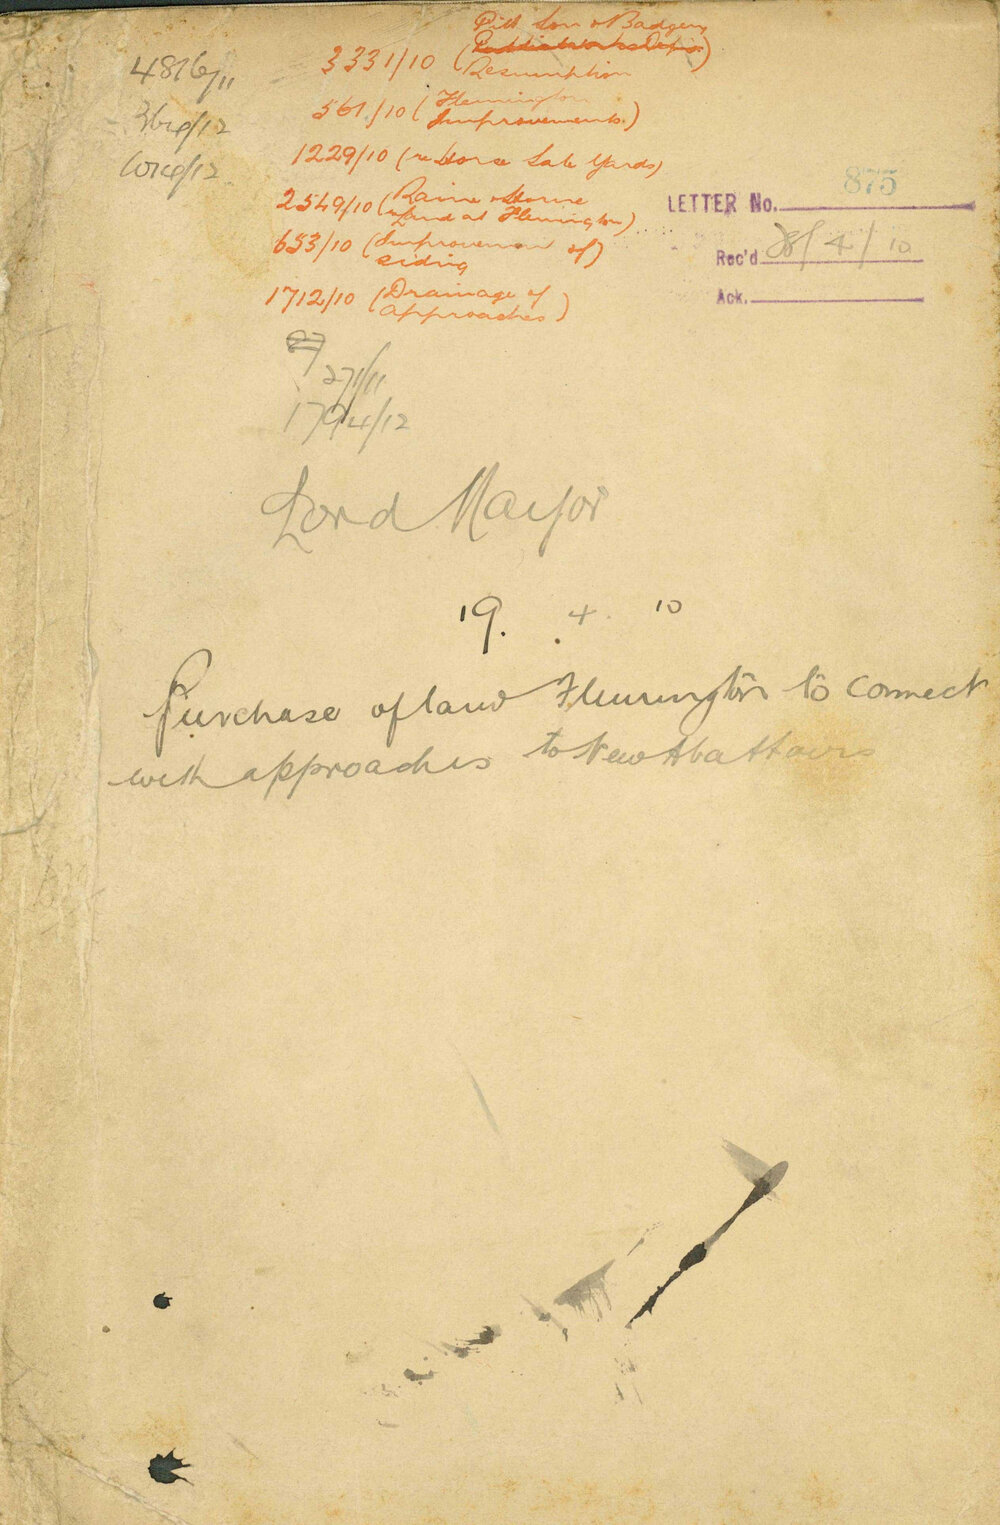 4816/11
3331/10 (
Pitt Son & Badgery
Resumption
561/10 (Flemington
Improvements.)
1229/10 (re Horse Sale Yards)
2549/10 (Raine & Horne
Land at Flemington)
653/10 (Improvement of)
siding
1712/10 (Drainage of
approaches)
LETTER No. 875
Rec'd 28/4/10
Ack.
27/11
1794/12
Lord Mayor
19. 4. 10
Purchase of land Flemington to connect
with approaches to New Abattoirs